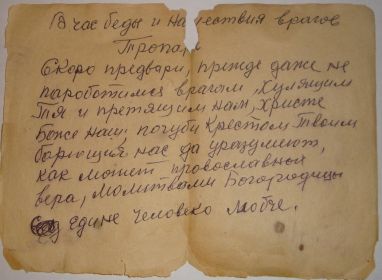 В час беды и нашествия врагов
Тропарь
Скоро предвари, прежде даже не
паробōтимся врагом, хулящим
Тя и претящим нам, Христе
Боже наш: погуби Крестом Твоим
борющия нас да уразумеют,
как может православных
вера, молитвами Богородицы
едине Человеко любче.